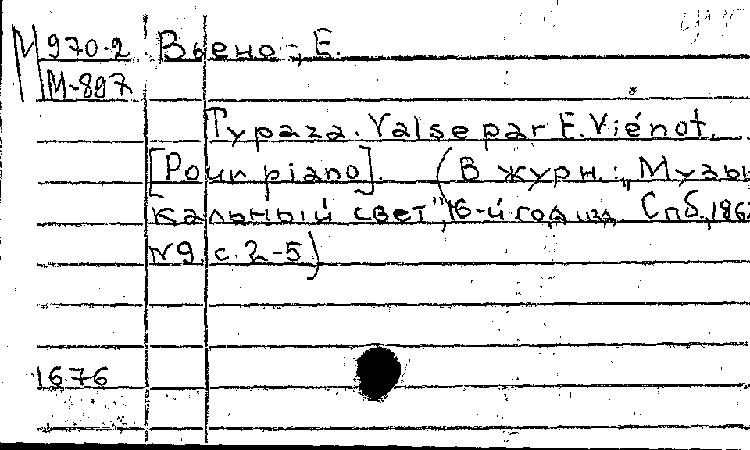 М 970-2 Вьено, Е.
М-897
Typaza. Valse par E. Viénot.
[Pour piano]. (В журн.: „Музы
кальный свет", 16-й год изд. Спб., 186
№9, с. 2-5)
1676